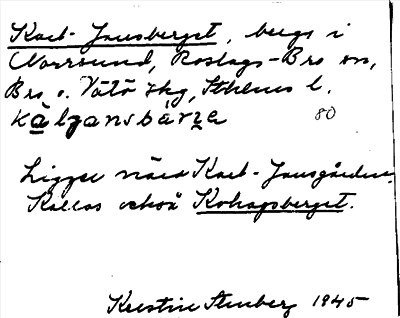 Karl-Jansberget, berg i
Norrsund, Roslags-Bro sn,
Bro o. Vätö skg, Sthlms l.
kāljansbärje 80
Ligger nära Karl-Jansgården.
Kallas också Kohagsberget.
Kerstin Stenberg 1945